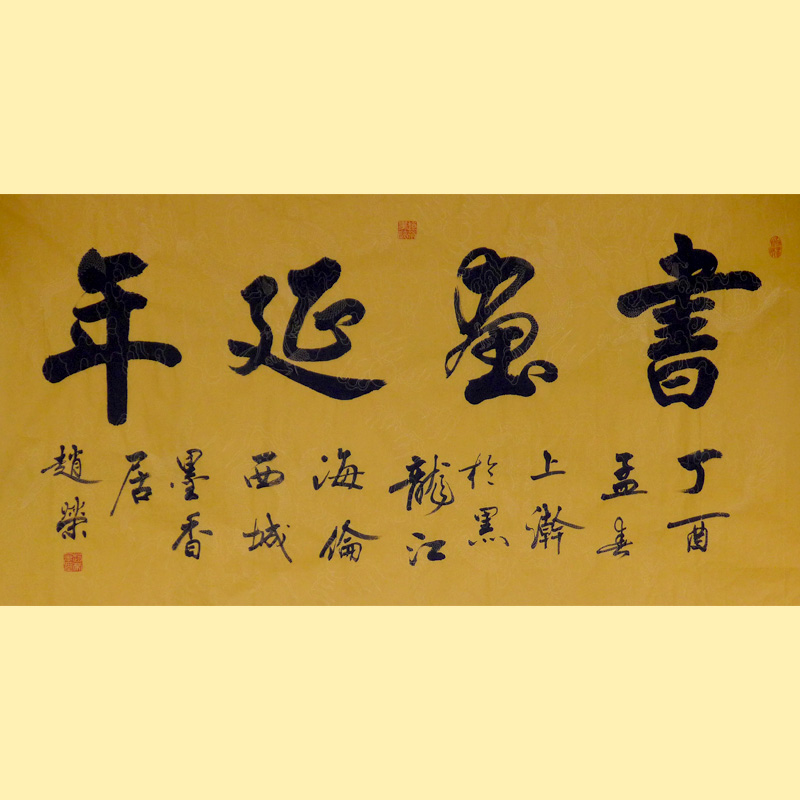 書畫延年
丁酉
孟春
上澣
於黑
龍江
海倫
西城
墨香
居
趙榮